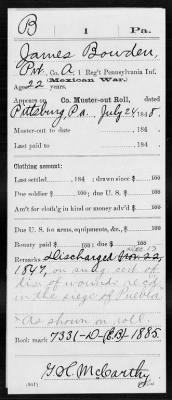 B | 1 | Pa.
James Bowden,
Pvt., Co. A, 1 Reg't Pennsylvania Inf.
(Mexican War.)
Age 22 years.
Appears on
Co. Muster-out Roll, dated
Pittsburg, Pa., July 24 1848.
Muster-out to date 184 .
Last paid to 184 .
Clothing account:
Last settled 184 ; drawn since $ 100
Due soldier $ 100; due U. S. $ 100
Am't for cloth'g in kind or money adv'd $ 100
Due U. S. for arms, equipments, &c., $ 100
Bounty paid $ 100; due $ 100
Remarks: Discharged
1847, on surg. cert. of
of wounds rec'd
in the siege of Puebla
As shown on roll.
Book mark: 7331-D-(EB)-1885
McCarthy